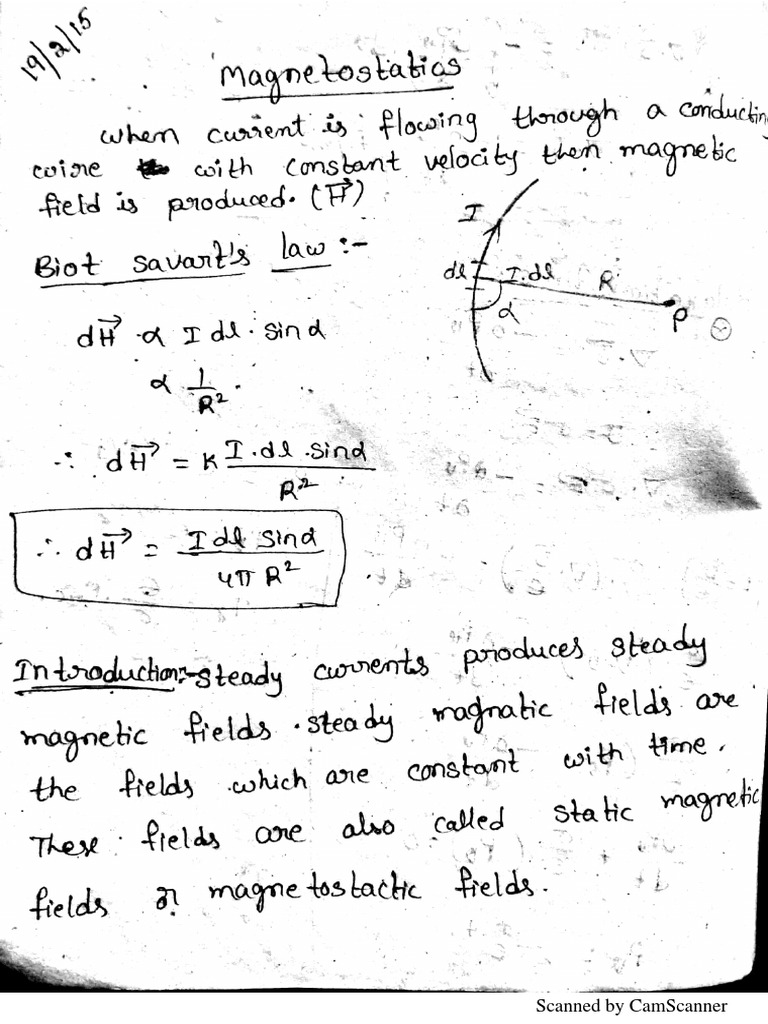 19/2/15
Magnetostatics
When current is flowing through a conducting
wire with constant velocity then magnetic
field is produced. (H⃗)
Biot savart's law :-
I
dl I.dl R
α P
dH⃗ α I dl . sinα
α 1/R².
∴ dH⃗ = K I.dl.sinα / R²
∴ dH⃗ = I dl sinα / 4π R²
Introduction:- steady currents produces steady
magnetic fields. steady magnatic fields are
the fields which are constant with time.
These fields are also called static magnetic
fields or magnetostactic fields.
Scanned by CamScanner